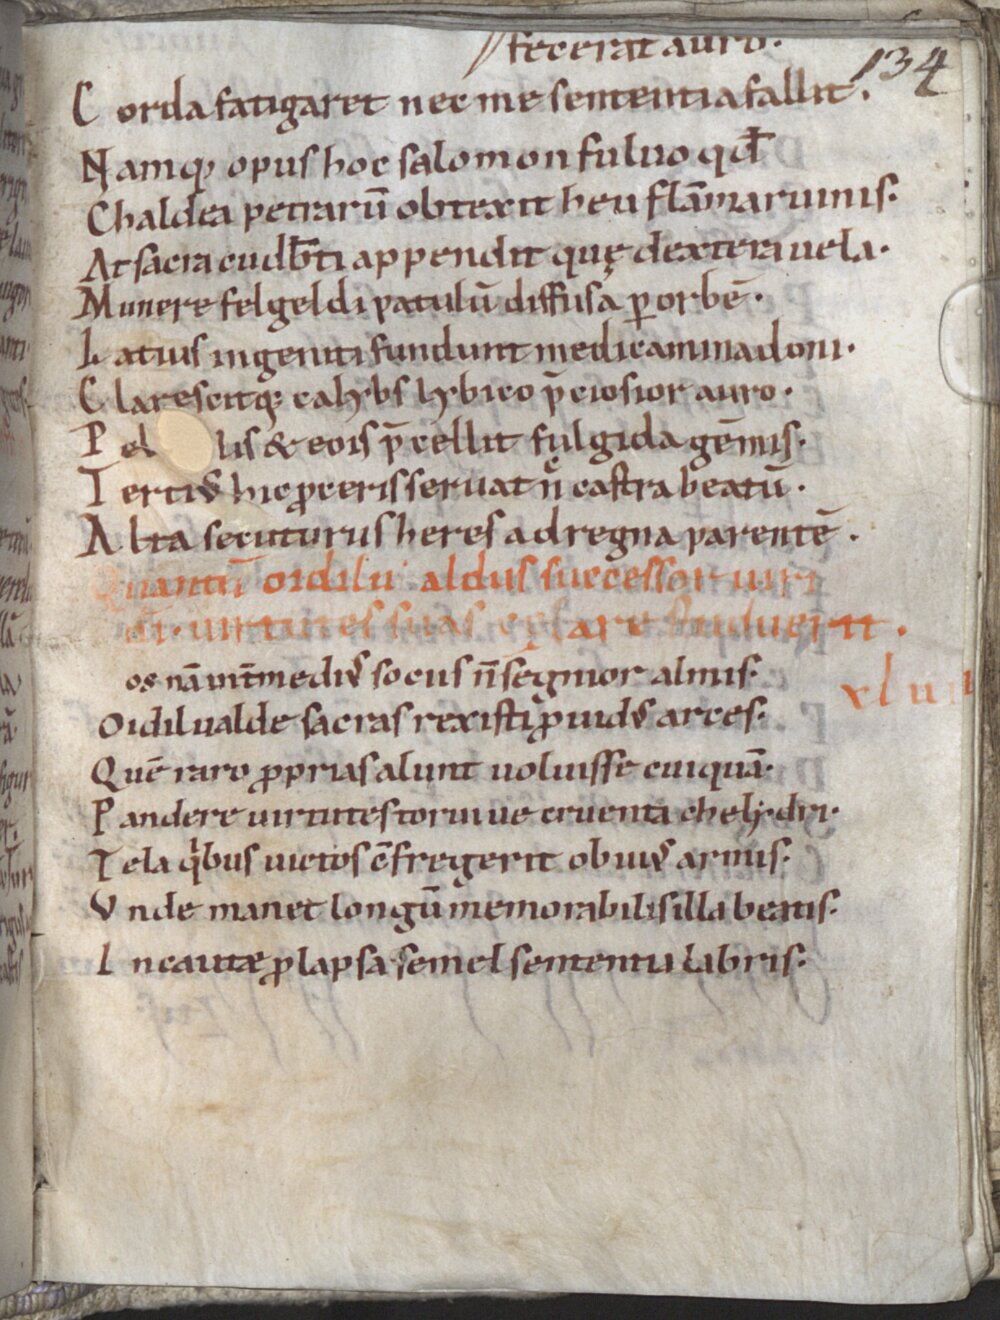 fecerat auro.
134
Corda fatigaret nec me sententia fallit.
Namq; opus hoc salomon fuluo qđ
Chaldea petrarū obtexit heu flāma ruinis.
At sacra cudƀti appendit quę dextera uela.
Munere felgeldi patulū diffusa ꝑ orbē.
Latius ingeniti fundunt medicammina doni.
Clarescitq; calybs lybico p̄ciosior auro.
Pel lis & eois p̄cellit fulgida gēmis.
Tertius hic ꝓceris seruat n̄ castra beatū.
Alta secuturus heres ad regna parentē.
Quantū oidilu aldus successor uiri
dī. uirtutes suas celare studuerit.
os nā uitm̄ medius socus n̄ segnior almis.
xlu
Oidilualde sacras rexisti ꝓuidus arces.
Quē raro ꝓprias alunt uoluisse cuiquā.
Pandere uirtutes torui ue cruenti chelydri.
Tela qibus uictos cōfregerit obuius armis.
Vnde manet longū memorabilis illa beatis.
Incautæ ꝓlapsa semel sententia labris.